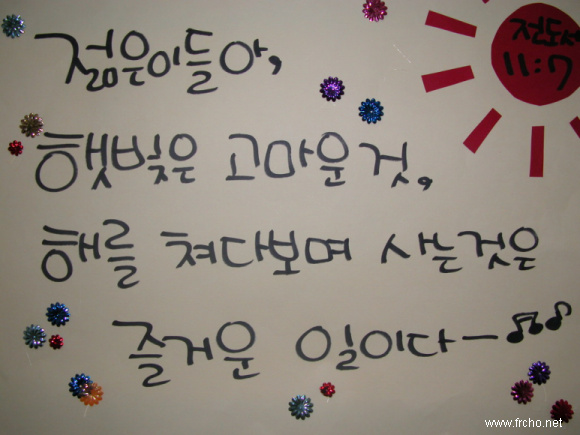 전도서
11:7
젊은이들아,
햇빛은 고마운것,
해를 쳐다보며 사는것은
즐거운 일이다ー♫♪
www.frcho.net